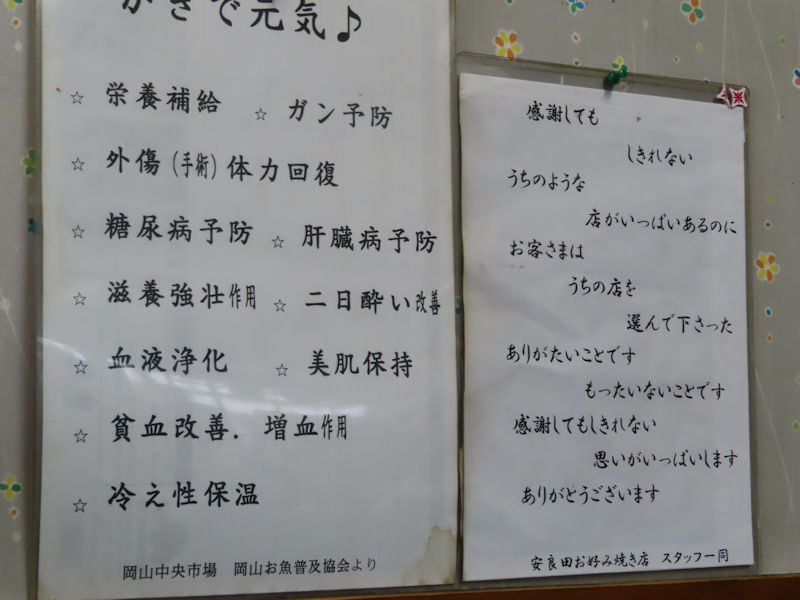 かきで元気♪
☆ 栄養補給 ☆ ガン予防
☆ 外傷(手術)体力回復
☆ 糖尿病予防 ☆ 肝臓病予防
☆ 滋養強壮作用 ☆ 二日酔い改善
☆ 血液浄化 ☆ 美肌保持
☆ 貧血改善．増血作用
☆ 冷え性保温
岡山中央市場 岡山お魚普及協会より
感謝しても
しきれない
うちのような
店がいっぱいあるのに
お客さまは
うちの店を
選んで下さった
ありがたいことです
もったいないことです
感謝してもしきれない
思いがいっぱいします
ありがとうございます
安良田お好み焼き店 スタッフ一同